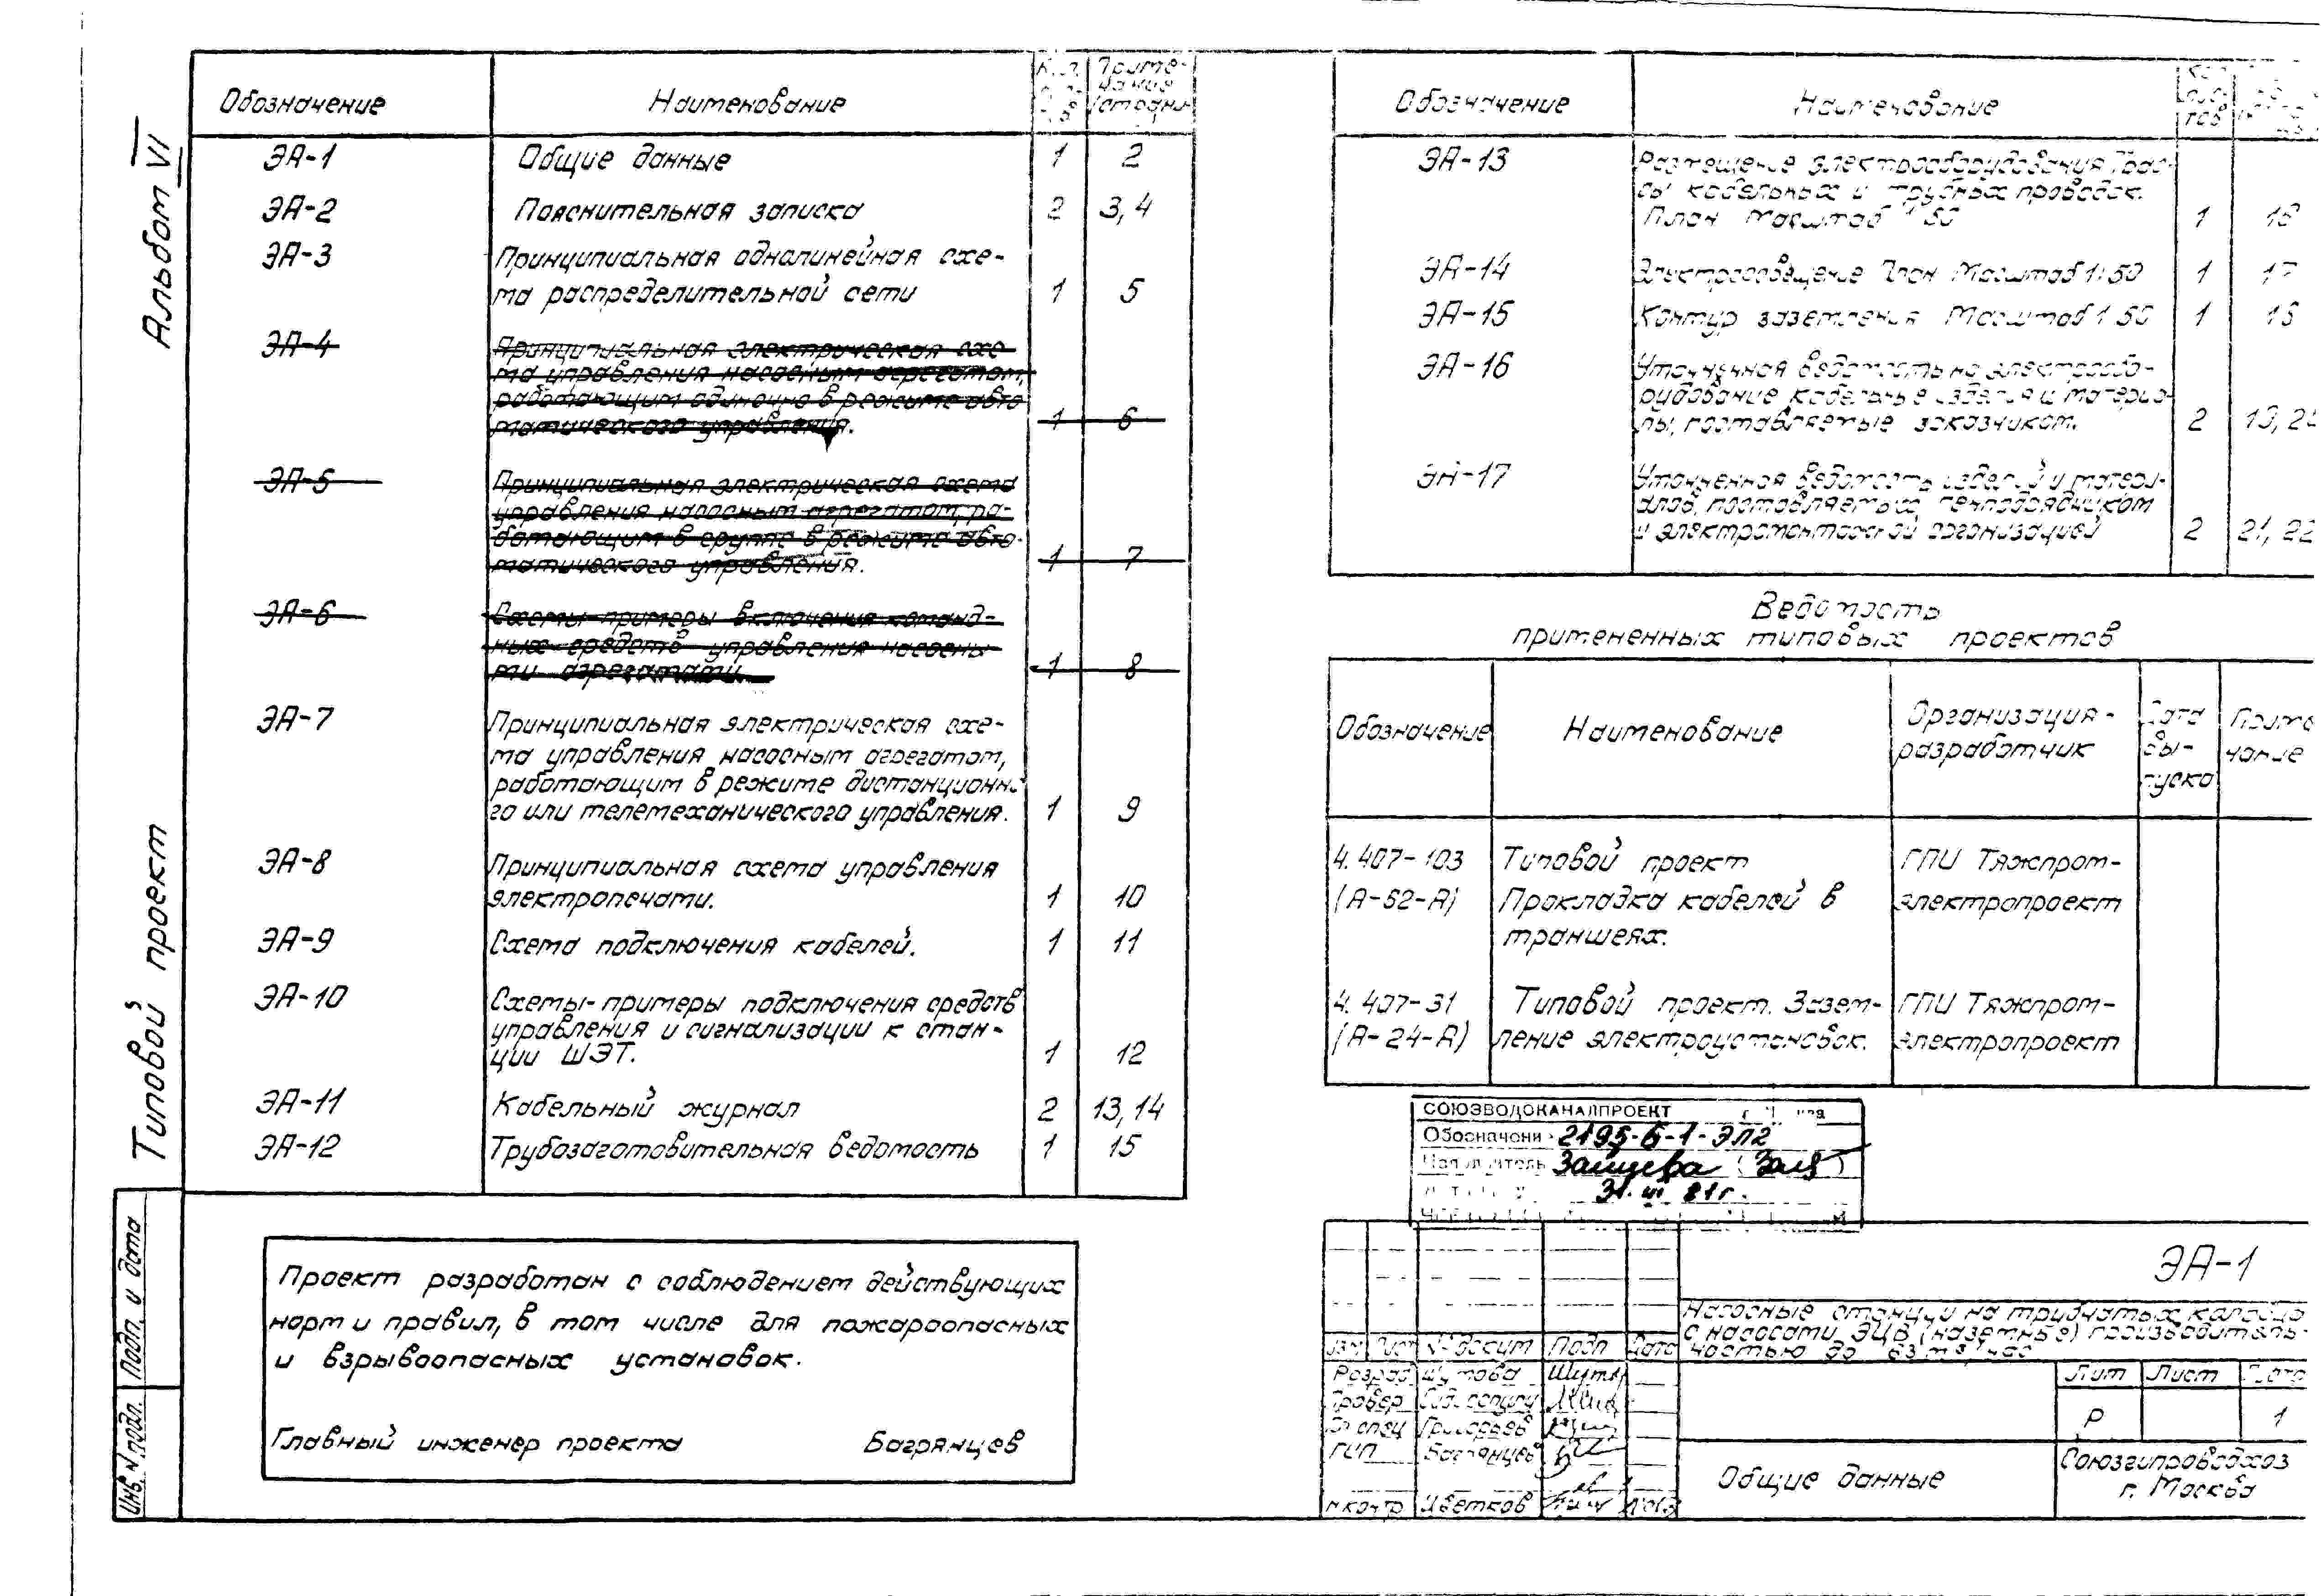 Альбом VI
Типовой проект
Подп. и дата
Инв. N подл.
Обозначение
Наименование
Приме-
чание
(страни-
ЭА-1 Общие данные 1 2
ЭА-2 Пояснительная записка 2 3,4
ЭА-3 Принципиальная однолинейная схе-
ма распределительной сети 1 5
ЭА-4 Принципиальная электрическая схе-
ма управления насосным агрегатом,
работающим одиночно в режиме авто
матического управления. 1 6
ЭА-5 Принципиальная электрическая схема
управления насосным агрегатом, ра-
ботающим в группе в режиме авто-
матического управления. 1 7
ЭА-6 Схемы примеры включения команд-
ных средств управления насосны
ми агрегатами. 1 8
ЭА-7 Принципиальная электрическая схе-
ма управления насосным агрегатом,
работающим в режиме дистанционно
го или телемеханического управления. 1 9
ЭА-8 Принципиальная схема управления
электропечами. 1 10
ЭА-9 Схема подключения кабелей. 1 11
ЭА-10 Схемы-примеры подключения средств
управления и сигнализации к стан-
ции ШЭТ. 1 12
ЭА-11 Кабельный журнал 2 13,14
ЭА-12 Трубозаготовительная ведомость 1 15
Проект разработан с соблюдением действующих
норм и правил, в том числе для пожароопасных
и взрывоопасных установок.
Главный инженер проекта Багрянцев
Обозначение
Наименование
ЭА-13 Размещение электрооборудования Трас-
сы кабельных и трубных проводок.
План Масштаб 1 50 1 16
ЭА-14 Электроосвещение План Масштаб 1:50 1 17
ЭА-15 Контур заземления Масштаб 1 50 1 18
ЭА-16 Уточненная ведомость на электрообо-
рудование кабельные изделия и материа-
лы, поставляемые заказчиком. 2 19, 20
ЭА-17 Уточненная ведомость изделий и матери-
алов, поставляемых генподрядчиком
и электромонтажной организацией 2 21, 22
Ведомость
примененных типовых проектов
Обозначение
Наименование
Организация-
разработчик
Дата
вы-
пуска
Приме
чание
4.407-103 Типовой проект ГПИ Тяжпром-
(А-62-А) Прокладка кабелей в электропроект
траншеях.
4.407-31 Типовой проект. Зазем- ГПИ Тяжпром-
(А-24-А) ление электроустановок. электропроект
СОЮЗВОДОКАНАЛПРОЕКТ
Обозначени 2195-6-1-ЭЛ2
Зайцева
31. III 81г.
ЭА-1
Насосные станции на трубчатых колодцах
с насосами ЭЦВ (наземные) производитель-
ностью до 63 м3/час
Изм Лист N докум Подп Дата
Разраб Шутова
Провер
Гл спец Григорьев
ГИП Багрянцев
Н контр Цветков
Лит Лист Листов
Р 1
Общие данные
Союзгипроводхоз
г. Москва